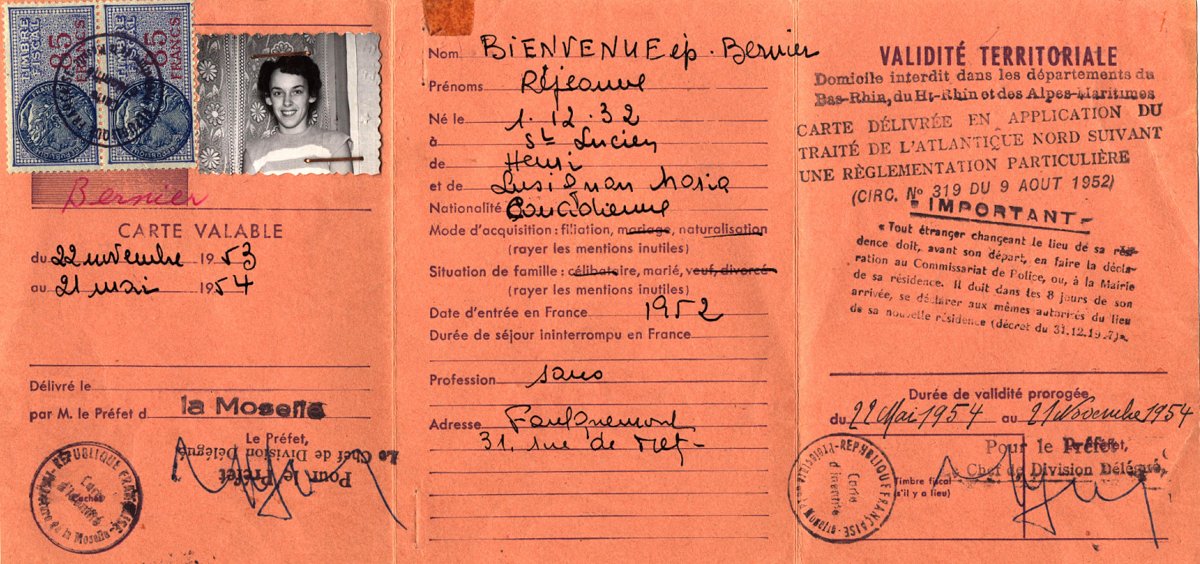 TIMBRE FISCAL 85 FRANCS
TIMBRE FISCAL 85 FRANCS
Bernier
CARTE VALABLE
du 22 novembre 1953
au 21 mai 1954
Délivré le
par M. le Préfet d la Moselle
Le Préfet,
Pour le Préfet
Le Chef de Division Délégué
RÉPUBLIQUE FRANÇAISE
Carte d'identité
Cachet
de la Moselle
Nom BIENVENUE ép. Bernier
Prénoms Réjeanne
Né le 1.12.32
à St Lucien
de Henri
et de Lusignan Maria
Nationalité Canadienne
Mode d'acquisition : filiation, mariage, naturalisation
(rayer les mentions inutiles)
Situation de famille : célibataire, marié, veuf, divorcé
(rayer les mentions inutiles)
Date d'entrée en France 1952
Durée de séjour ininterrompu en France
Profession sans
Adresse Faulquemont
31, rue de Metz
VALIDITÉ TERRITORIALE
Domicile interdit dans les départements du
Bas-Rhin, du Ht-Rhin et des Alpes-Maritimes
CARTE DÉLIVRÉE EN APPLICATION DU
TRAITÉ DE L'ATLANTIQUE NORD SUIVANT
UNE RÈGLEMENTATION PARTICULIÈRE
(CIRC. N° 319 DU 9 AOUT 1952)
IMPORTANT
« Tout étranger changeant le lieu de sa rési-
dence doit, avant son départ, en faire la décla-
ration au Commissariat de Police, ou, à la Mairie
de sa résidence. Il doit dans les 8 jours de son
arrivée, se déclarer aux mêmes autorités du lieu
de sa nouvelle résidence (décret du 31.12.1947)».
Durée de validité prorogée
du 22 Mai 1954 au 21 Novembre 1954
Pour le Préfet,
Le Chef de Division Délégué,
Timbre fiscal
(s'il y a lieu)
RÉPUBLIQUE FRANÇAISE
Carte d'identité